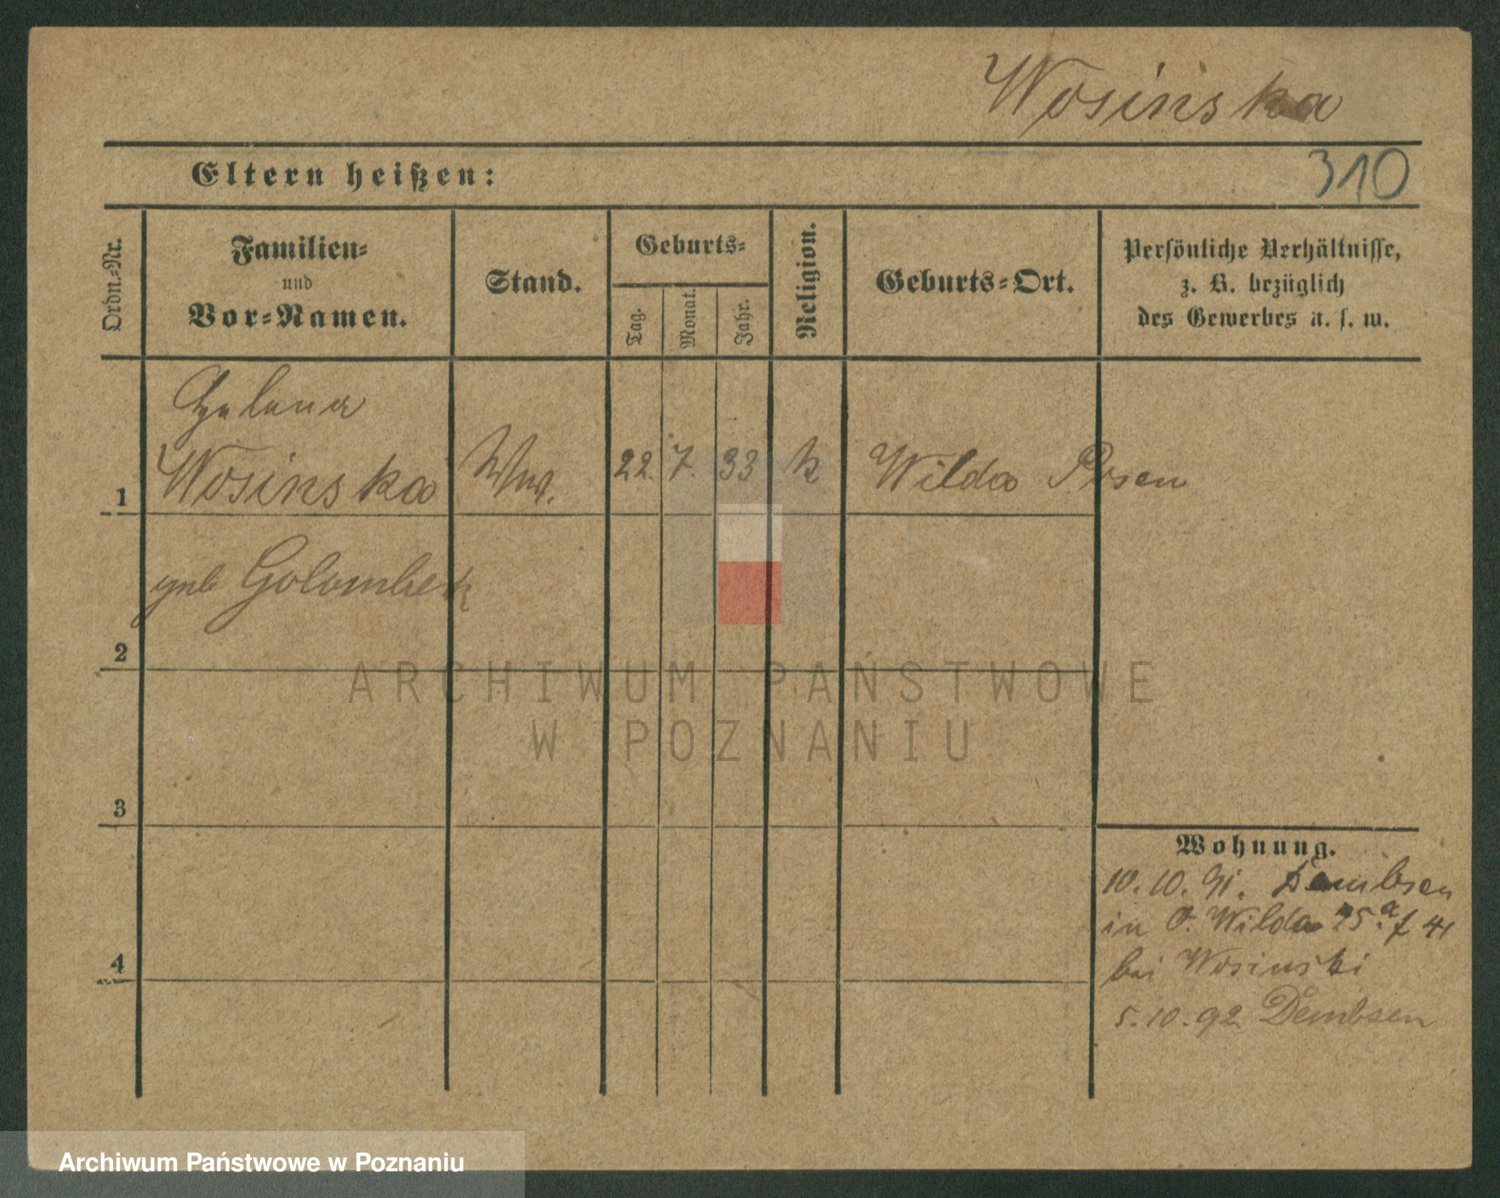 Wosinska
310
Eltern heißen:
Ordn.-Nr.
Familien-
und
Vor-Namen.
Stand.
Geburts-
Tag.
Monat.
Jahr.
Religion.
Geburts-Ort.
Persönliche Verhältnisse,
z. B. bezüglich
des Gewerbes u. s. w.
Helena
1 Wosinska Ww. 22. 7. 33 k Wilda Posen
geb Golombek
2
3
4
Wohnung.
10. 10. 91. Dembsen
in O. Wilda 25.a f 41
bei Wosinski
5.10.92 Dembsen
ARCHIWUM PAŃSTWOWE
W POZNANIU
Archiwum Państwowe w Poznaniu